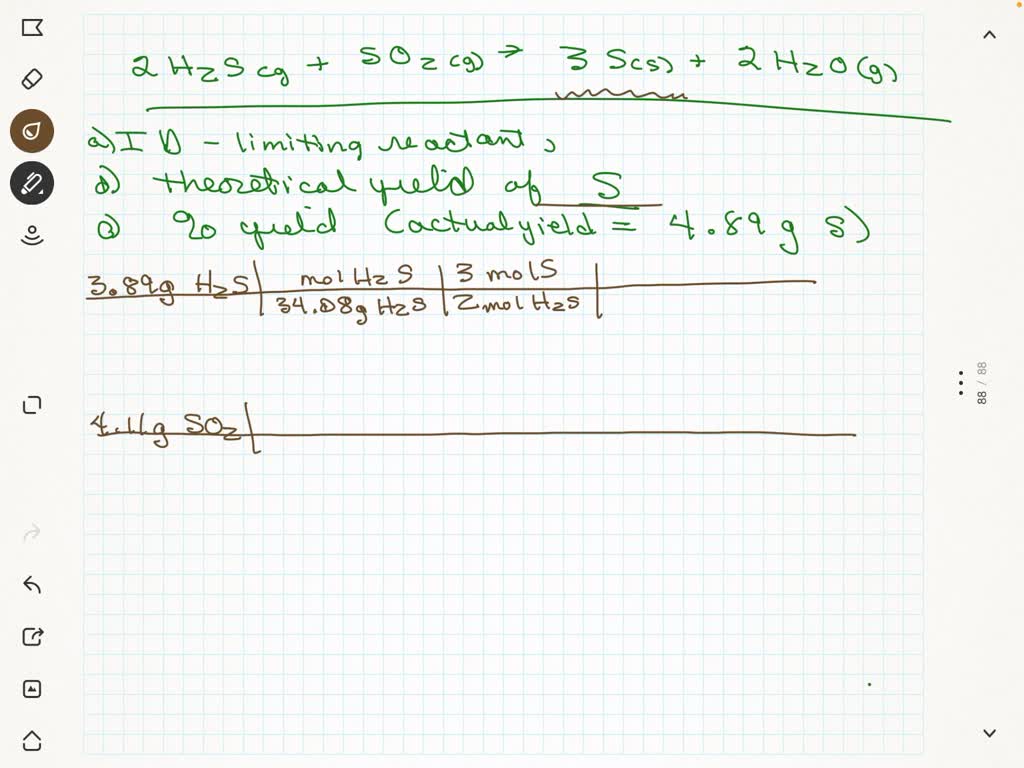 2 H2S cg + SO2 (g) → 3 S(s) + 2 H2O(g)
a) ID - limiting reactant,
b) theoretical yield of S
c) % yield (actual yield = 4.89 g S)
3.89g H2S | mol H2S | 3 mol S |
34.08g H2S | 2 mol H2S
4.11g SO2 |
88 / 88